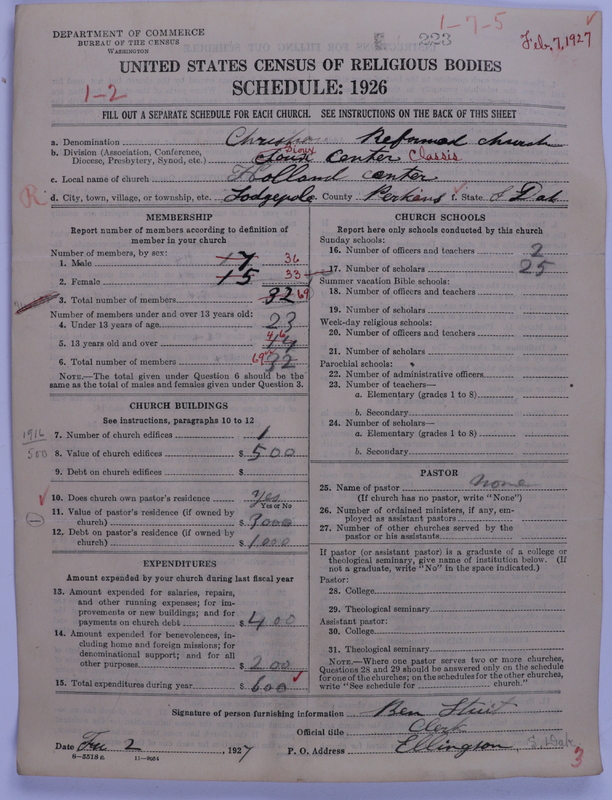 1-7-5
DEPARTMENT OF COMMERCE
BUREAU OF THE CENSUS
WASHINGTON
223
Feb. 7, 1927
UNITED STATES CENSUS OF RELIGIOUS BODIES
1-2
SCHEDULE: 1926
FILL OUT A SEPARATE SCHEDULE FOR EACH CHURCH. SEE INSTRUCTIONS ON THE BACK OF THIS SHEET
a. Denomination Christian Reformed church
b. Division (Association, Conference, Diocese, Presbytery, Synod, etc.) Sioux Center Classis
c. Local name of church Holland center
R
d. City, town, village, or township, etc. Lodgepole County Perkins f. State S Dak
MEMBERSHIP
Report number of members according to definition of
member in your church
Number of members, by sex:
1. Male 17 36
2. Female 15 33
3. Total number of members 32 69
Number of members under and over 13 years old:
4. Under 13 years of age 23
5. 13 years old and over 46
6. Total number of members 69 32
NOTE.—The total given under Question 6 should be the
same as the total of males and females given under Question 3.
CHURCH BUILDINGS
See instructions, paragraphs 10 to 12
1916
500
7. Number of church edifices 1
8. Value of church edifices $ 500
9. Debt on church edifices $
10. Does church own pastor's residence yes
Yes or No
11. Value of pastor's residence (if owned by
church) $ 3000
12. Debt on pastor's residence (if owned by
church) $ 1000
EXPENDITURES
Amount expended by your church during last fiscal year
13. Amount expended for salaries, repairs,
and other running expenses; for im-
provements or new buildings; and for
payments on church debt $ 400
14. Amount expended for benevolences, in-
cluding home and foreign missions; for
denominational support; and for all
other purposes $ 200
15. Total expenditures during year $ 600
CHURCH SCHOOLS
Report here only schools conducted by this church
Sunday schools:
16. Number of officers and teachers 2
17. Number of scholars 25
Summer vacation Bible schools:
18. Number of officers and teachers
19. Number of scholars
Week-day religious schools:
20. Number of officers and teachers
21. Number of scholars
Parochial schools:
22. Number of administrative officers
23. Number of teachers—
a. Elementary (grades 1 to 8)
b. Secondary
24. Number of scholars—
a. Elementary (grades 1 to 8)
b. Secondary
PASTOR
25. Name of pastor none
(If church has no pastor, write "None")
26. Number of ordained ministers, if any, em-
ployed as assistant pastors
27. Number of other churches served by the
pastor or his assistants
If pastor (or assistant pastor) is a graduate of a college or
theological seminary, give name of institution below. (If
not a graduate, write "No" in the space indicated.)
Pastor:
28. College
29. Theological seminary
Assistant pastor:
30. College
31. Theological seminary
NOTE.—Where one pastor serves two or more churches,
Questions 28 and 29 should be answered only on the schedule
for one of the churches; on the schedules for the other churches,
write "See schedule for church."
Signature of person furnishing information Ben Stuit
Official title Clerk
Date Feb 2, 1927 P. O. Address Ellingson, S. Dak.
8-5518 a 11-9064
3